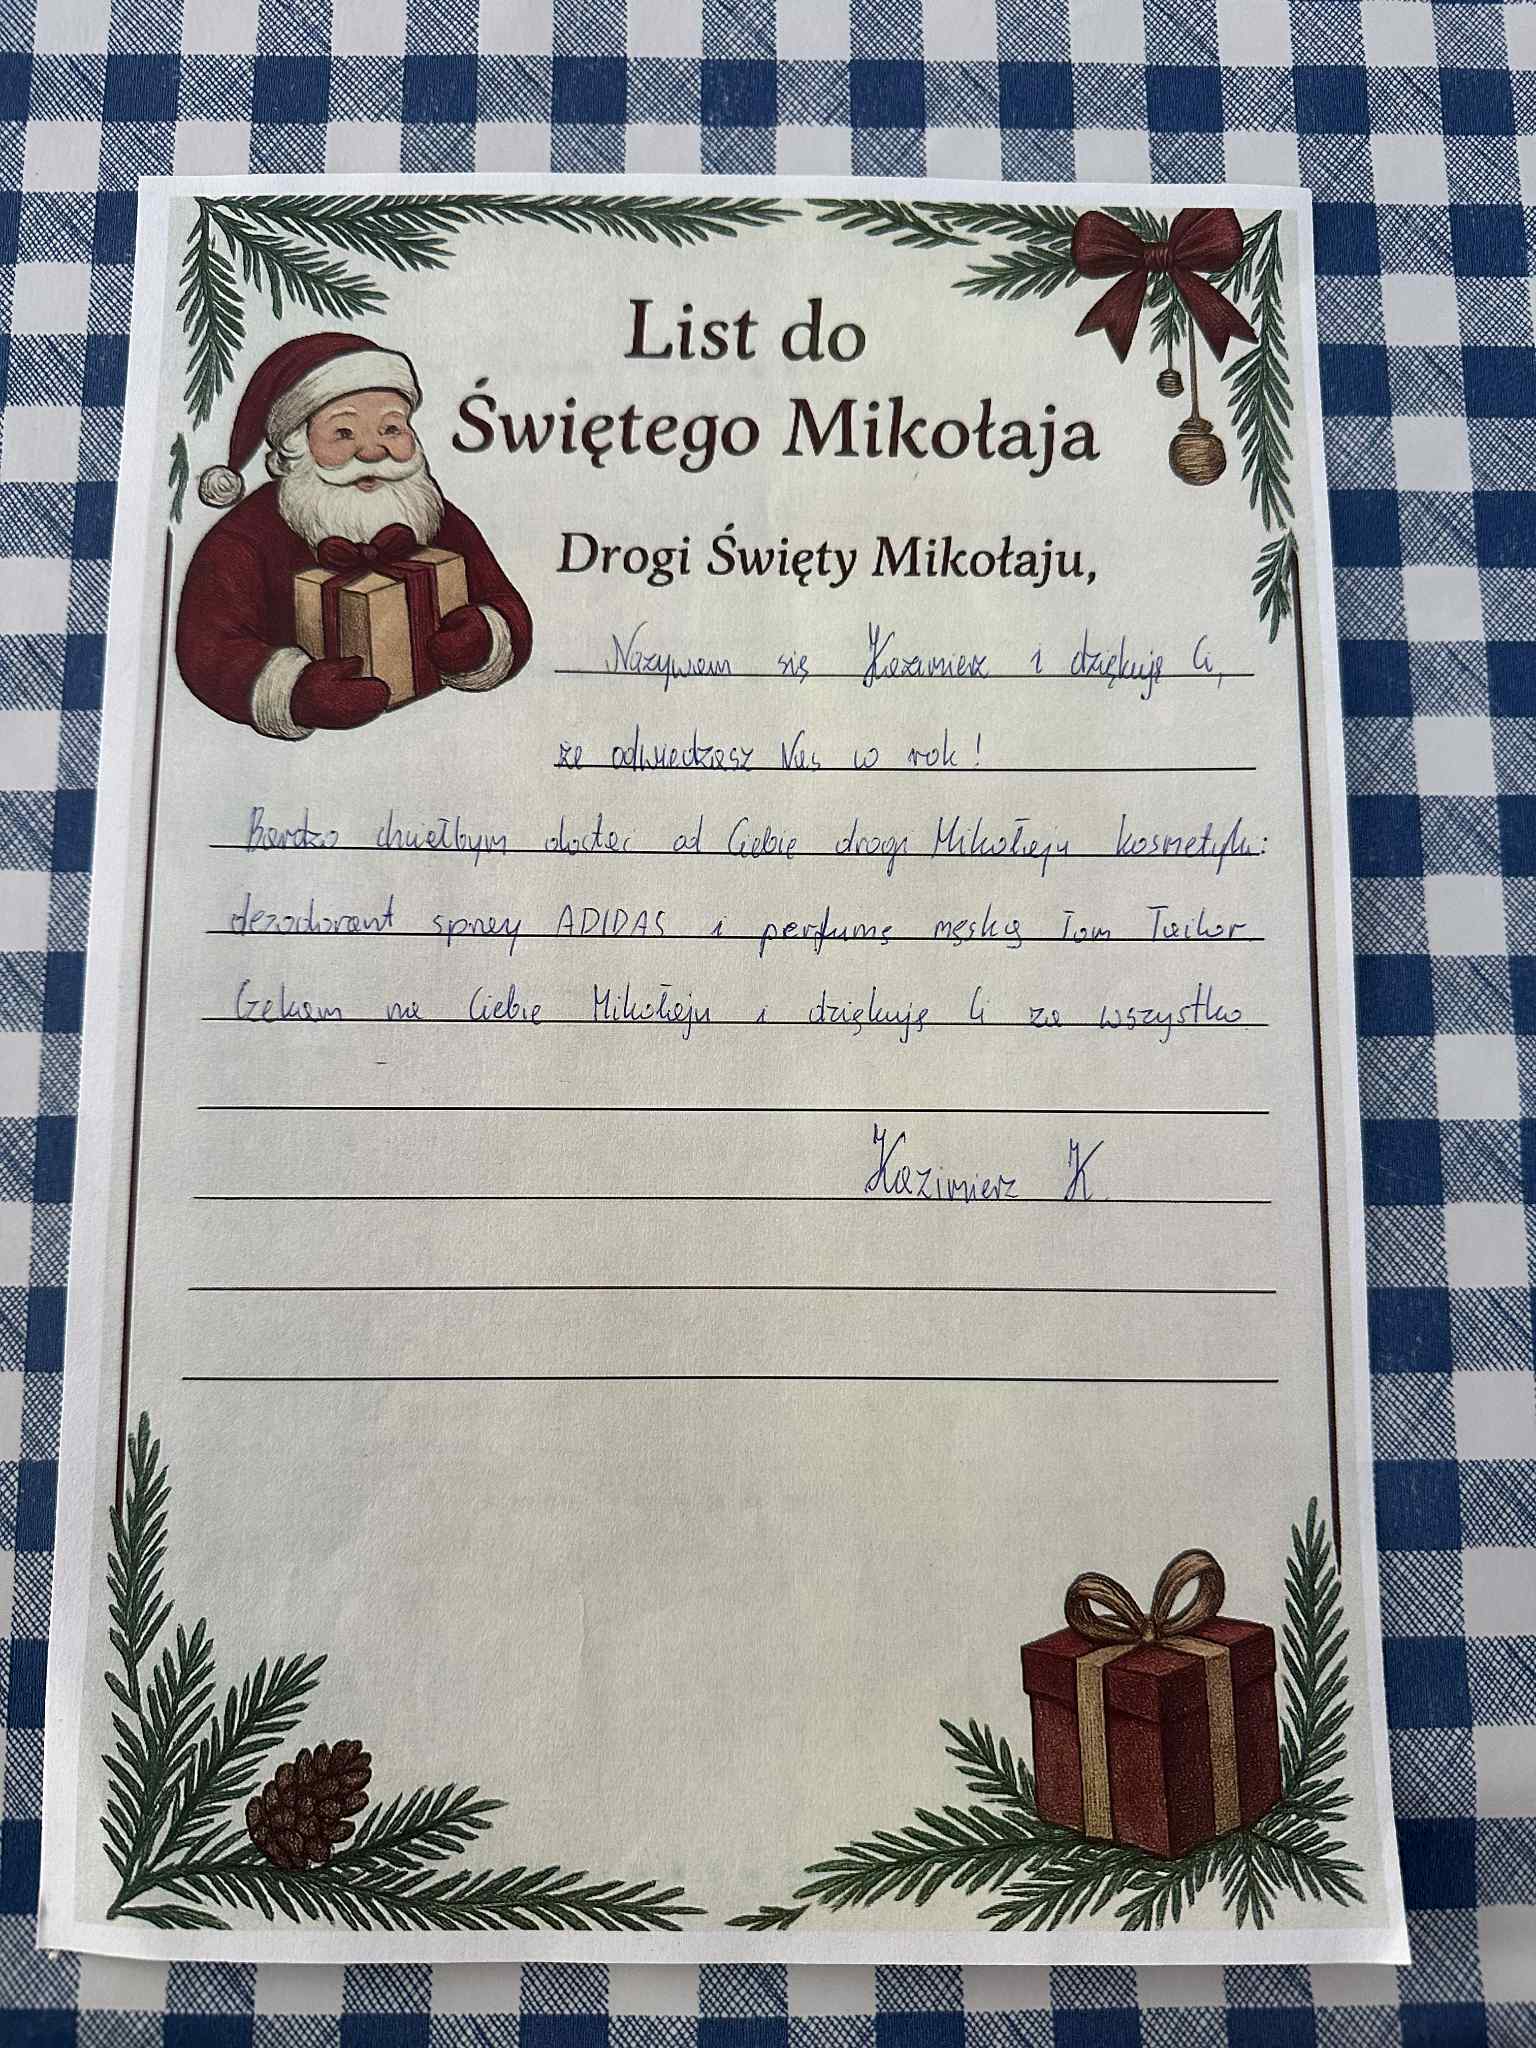 List do
Świętego Mikołaja
Drogi Święty Mikołaju,
Nazywam się Kazimierz i dziękuję Ci,
że odwiedzasz Nas w rok!
Bardzo chciałbym dostać od Ciebie drogi Mikołaju kosmetyki:
dezodorant spray ADIDAS i perfumę męską Tom Tailor.
Czekam na Ciebie Mikołaju i dziękuję Ci za wszystko
Kazimierz K.